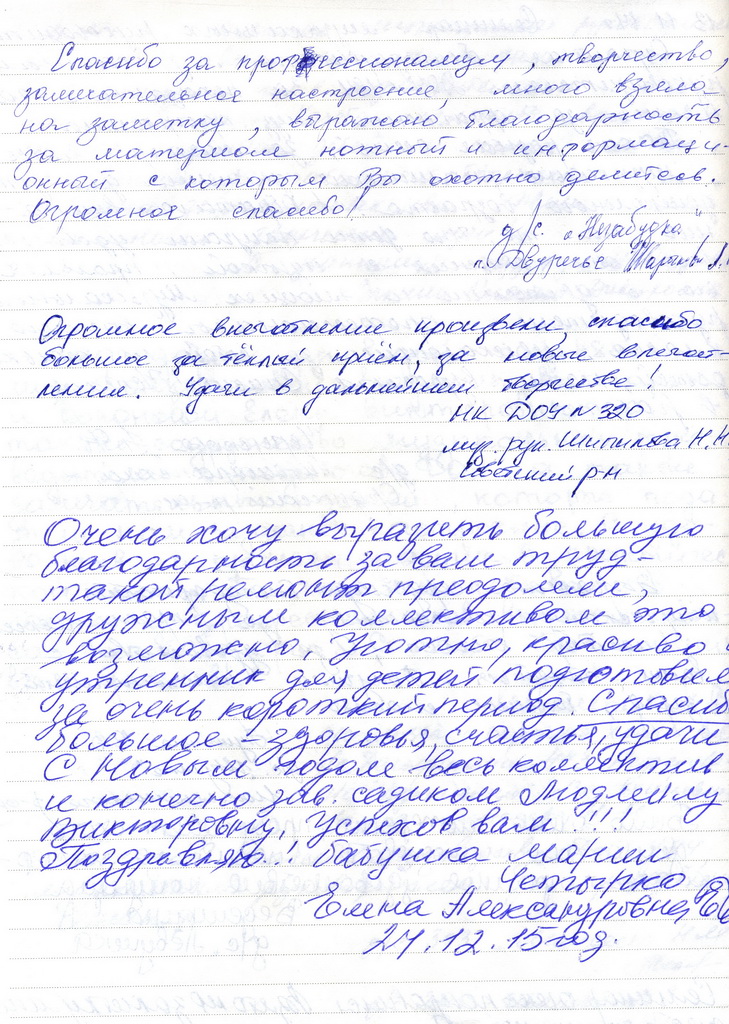 Спасибо за професссионализм, творчество,
замечательное настроение, много взяла
на заметку, выражаю благодарность
за материал нотный и информаци-
онный с которым Вы охотно делитесь.
Огромное спасибо!
д/с. "Незабудка"
п. Двуречье
Огромное впечатление произвели, спасибо
большое за тёплый приём, за новые впечат-
ления. Удачи в дальнейшем творчестве!
НК ДОУ N 320
муз. рук. Шипилова Н.Н.
Советский р-н
Очень хочу выразить большую
благодарность за ваш труд -
такой ремонт преодолели,
дружным коллективом это
возможно, Уютно, красиво
утренник для детей подготовили
за очень короткий период. Спасибо
большое - здоровья, счастья, удачи
С Новым годом весь коллектив
и конечно зав. садиком Людмилу
Викторовну, Успехов вам!!!
Поздравляю..! бабушка Марии
Четырко
Елена Александровна
27.12.15 год.